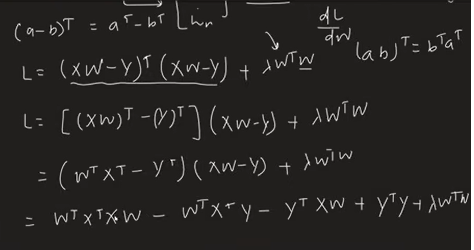 (a-b)ᵀ = aᵀ-bᵀ
dL/dW
(ab)ᵀ=bᵀaᵀ
L = (XW-Y)ᵀ (XW-Y) + λWᵀW
L = [(XW)ᵀ - (Y)ᵀ] (XW-Y) + λWᵀW
= (WᵀXᵀ - Yᵀ) (XW-Y) + λWᵀW
= WᵀXᵀXW - WᵀXᵀY - YᵀXW + YᵀY + λWᵀW